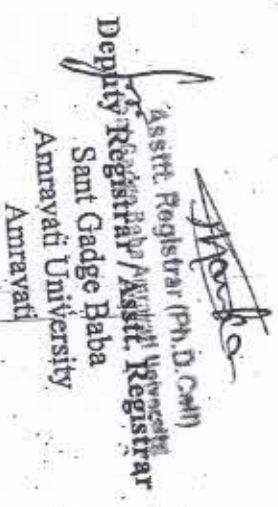 Asstt. Registrar (Ph.D.Cell)
Gadge Baba Amravati University
Deputy Registrar / Asstt. Registrar
Sant Gadge Baba
Amravati University
Amravati